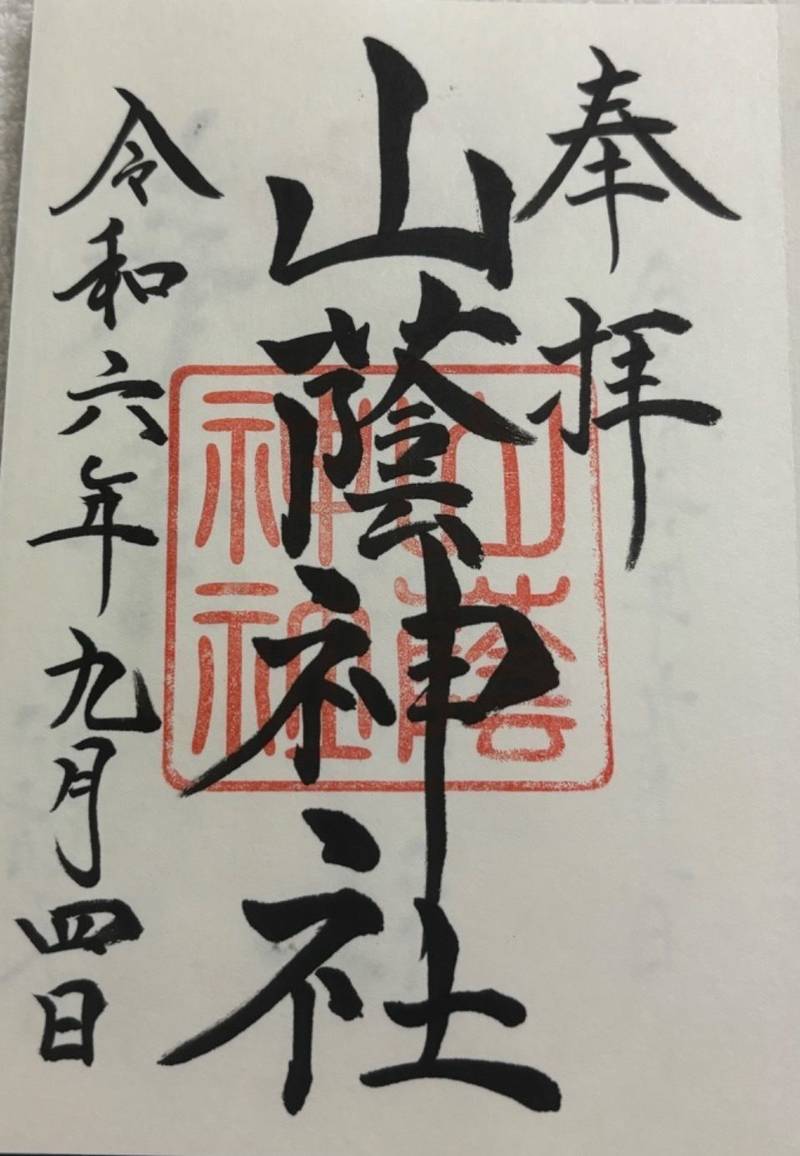 奉拝
山蔭神社
令和六年九月四日
山蔭
神社